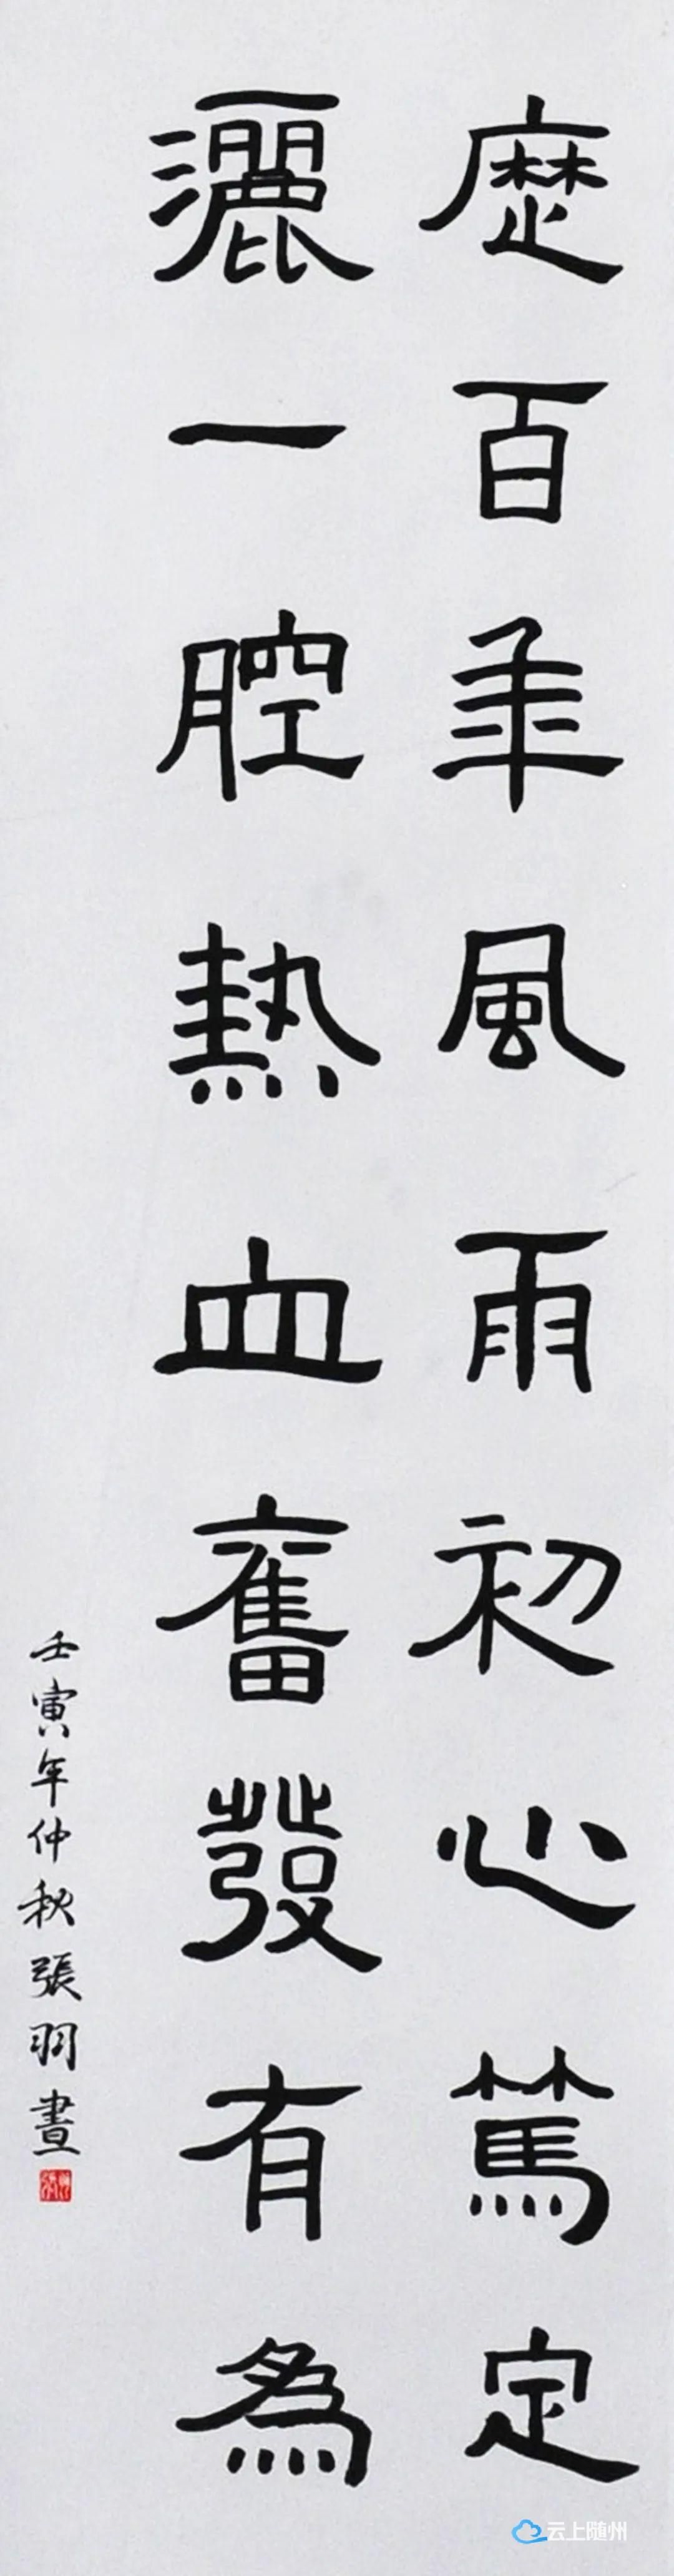 歴百年風雨初心篤定
灑一腔熱血奮發有為
壬寅年仲秋張羽書
云上随州